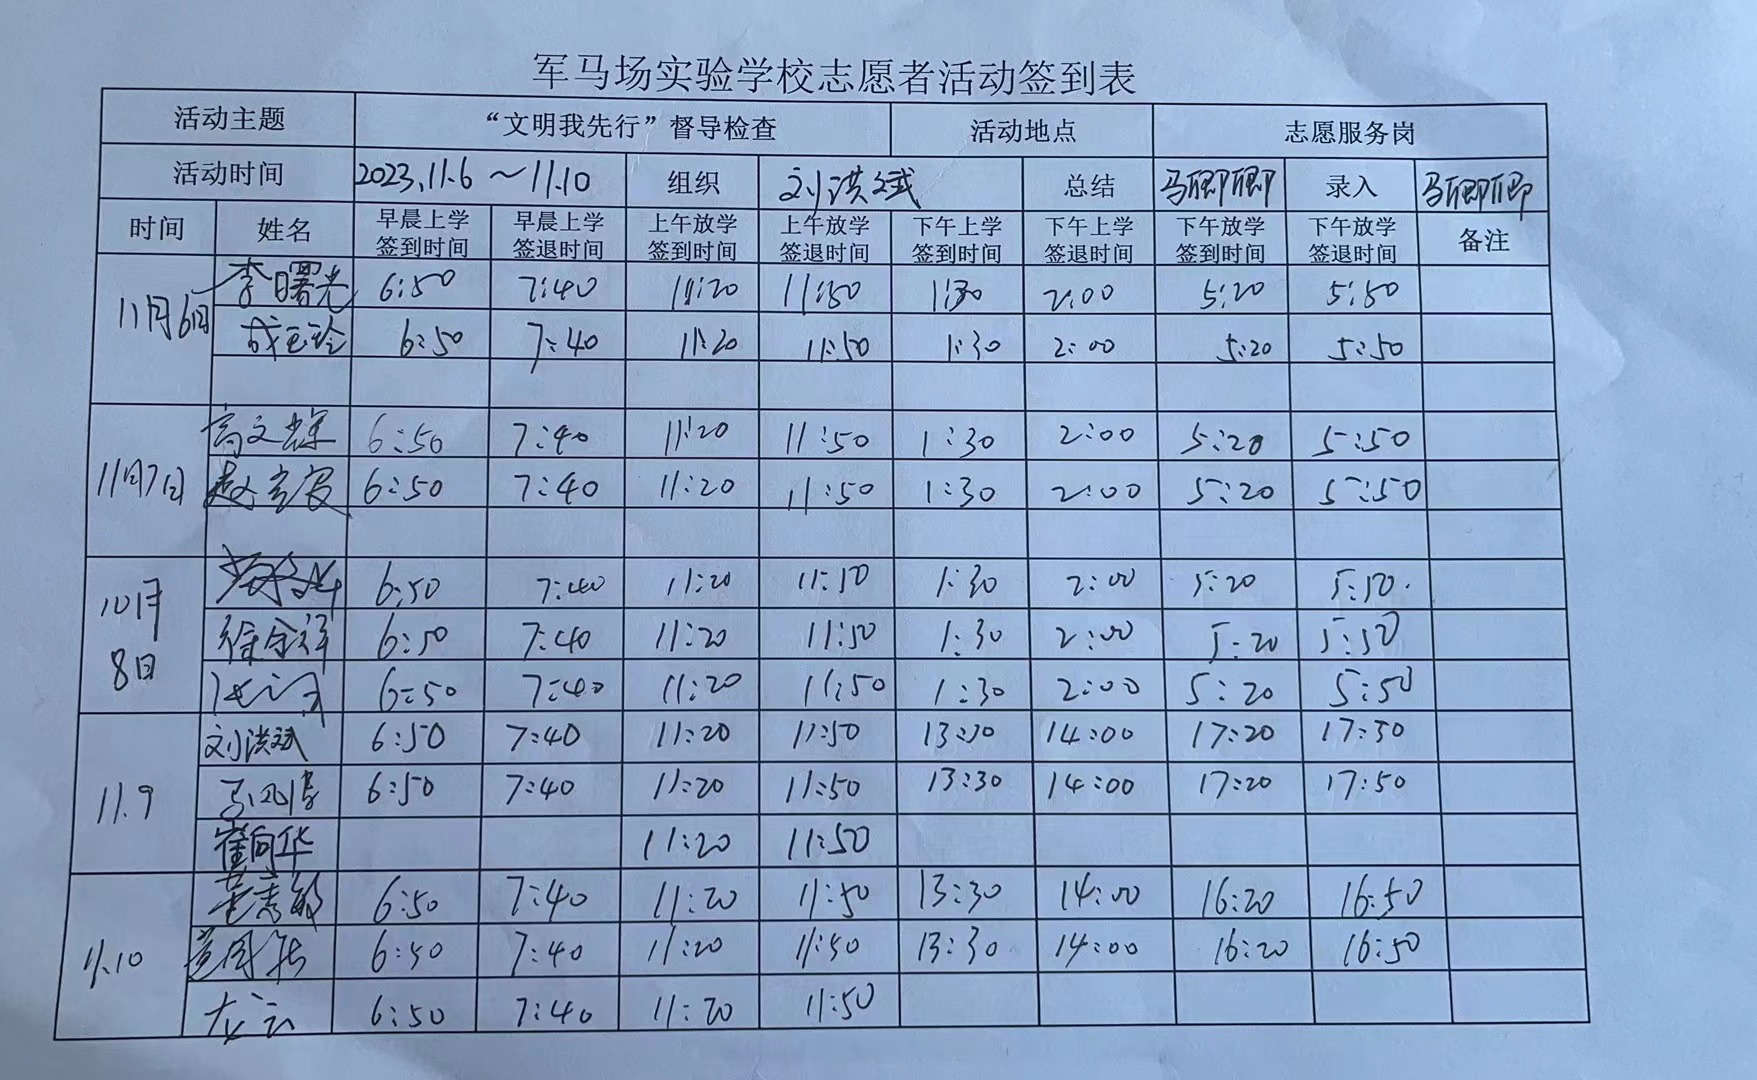 军马场实验学校志愿者活动签到表
活动主题 “文明我先行”督导检查 活动地点 志愿服务岗
活动时间 2023.11.6～11.10 组织 刘洪斌 总结 马卿卿 录入 马卿卿
时间 姓名 早晨上学签到时间 早晨上学签退时间 上午放学签到时间 上午放学签退时间 下午上学签到时间 下午上学签退时间 下午放学签到时间 下午放学签退时间 备注
11月6日 李曙光 6:50 7:40 11:20 11:50 1:30 2:00 5:20 5:50
成玉玲 6:50 7:40 11:20 11:50 1:30 2:00 5:20 5:50
11月7日 高文辉 6:50 7:40 11:20 11:50 1:30 2:00 5:20 5:50
6:50 7:40 11:20 11:50 1:30 2:00 5:20 5:50
10月8日 6:50 7:40 11:20 11:50 1:30 2:00 5:20 5:50
徐金祥 6:50 7:40 11:20 11:50 1:30 2:00 5:20 5:50
6:50 7:40 11:20 11:50 1:30 2:00 5:20 5:50
11.9 刘洪斌 6:50 7:40 11:20 11:50 13:30 14:00 17:20 17:50
6:50 7:40 11:20 11:50 13:30 14:00 17:20 17:50
崔向华 11:20 11:50
11.10 6:50 7:40 11:20 11:50 13:30 14:00 16:20 16:50
6:50 7:40 11:20 11:50 13:30 14:00 16:20 16:50
6:50 7:40 11:20 11:50